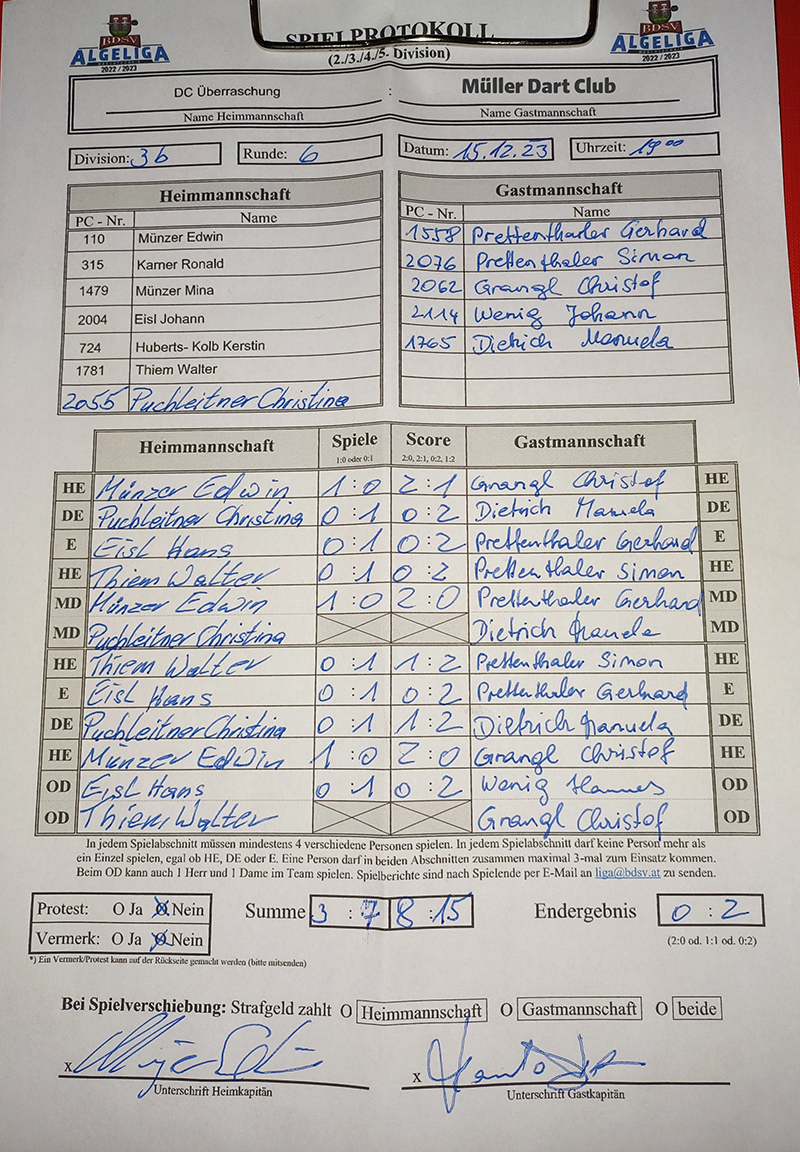 BDSV
ALGELIGA
2022 / 2023
SPIELPROTOKOLL
(2./3./4./5- Division)
BDSV
ALGELIGA
2022 / 2023
DC Überraschung : Müller Dart Club
Name Heimmannschaft Name Gastmannschaft
Division: 3b Runde: 6 Datum: 15.12.23 Uhrzeit: 19 00
Heimmannschaft
PC - Nr. Name
110 Münzer Edwin
315 Karner Ronald
1479 Münzer Mina
2004 Eisl Johann
724 Huberts- Kolb Kerstin
1781 Thiem Walter
2055 Puchleitner Christina
Gastmannschaft
PC - Nr. Name
1558 Prettenthaler Gerhard
2076 Prettenthaler Simon
2062 Grangl Christof
2114 Wenig Johann
1765 Dietrich Manuela
Heimmannschaft Spiele Score Gastmannschaft
1:0 oder 0:1 2:0, 2:1, 0:2, 1:2
HE Münzer Edwin 1 : 0 2 : 1 Grangl Christof HE
DE Puchleitner Christina 0 : 1 0 : 2 Dietrich Manuela DE
E Eisl Hans 0 : 1 0 : 2 Prettenthaler Gerhard E
HE Thiem Walter 0 : 1 0 : 2 Prettenthaler Simon HE
MD Münzer Edwin 1 : 0 2 : 0 Prettenthaler Gerhard MD
MD Puchleitner Christina Dietrich Manuela MD
HE Thiem Walter 0 : 1 1 : 2 Prettenthaler Simon HE
E Eisl Hans 0 : 1 0 : 2 Prettenthaler Gerhard E
DE Puchleitner Christina 0 : 1 1 : 2 Dietrich Manuela DE
HE Münzer Edwin 1 : 0 2 : 0 Grangl Christof HE
OD Eisl Hans 0 : 1 0 : 2 Wenig Hannes OD
OD Thiem Walter Grangl Christof OD
In jedem Spielabschnitt müssen mindestens 4 verschiedene Personen spielen. In jedem Spielabschnitt darf keine Person mehr als
ein Einzel spielen, egal ob HE, DE oder E. Eine Person darf in beiden Abschnitten zusammen maximal 3-mal zum Einsatz kommen.
Beim OD kann auch 1 Herr und 1 Dame im Team spielen. Spielberichte sind nach Spielende per E-Mail an liga@bdsv.at zu senden.
Protest: O Ja O Nein Summe 3 : 7 8 : 15 Endergebnis 0 : 2
Vermerk: O Ja O Nein (2:0 od. 1:1 od. 0:2)
*) Ein Vermerk/Protest kann auf der Rückseite gemacht werden (bitte mitsenden)
Bei Spielverschiebung: Strafgeld zahlt O Heimmannschaft O Gastmannschaft O beide
x x
Unterschrift Heimkapitän Unterschrift Gastkapitän